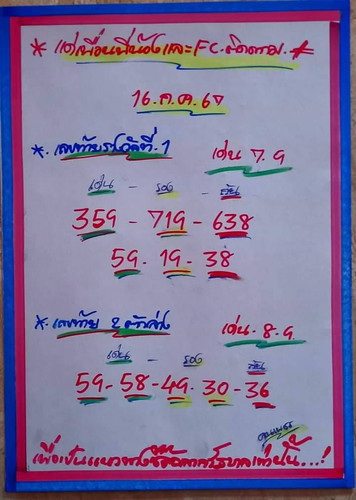 * แด่เพื่อนพี่น้องและFC.ติดตาม.*
16.ต.ค.67
*.เลขท้ายรางวัลที่.1
เด่น 7.9
เด่น - รอง - ตัน
359 - 719 - 638
59 - 19 - 38
*.เลขท้าย 2 ตัวล่าง
เด่น.8.9
เด่น - รอง
59-58-49.30-36
เพื่อเป็นแนวทางซื้อสลากรัฐบาลเท่านั้น...!